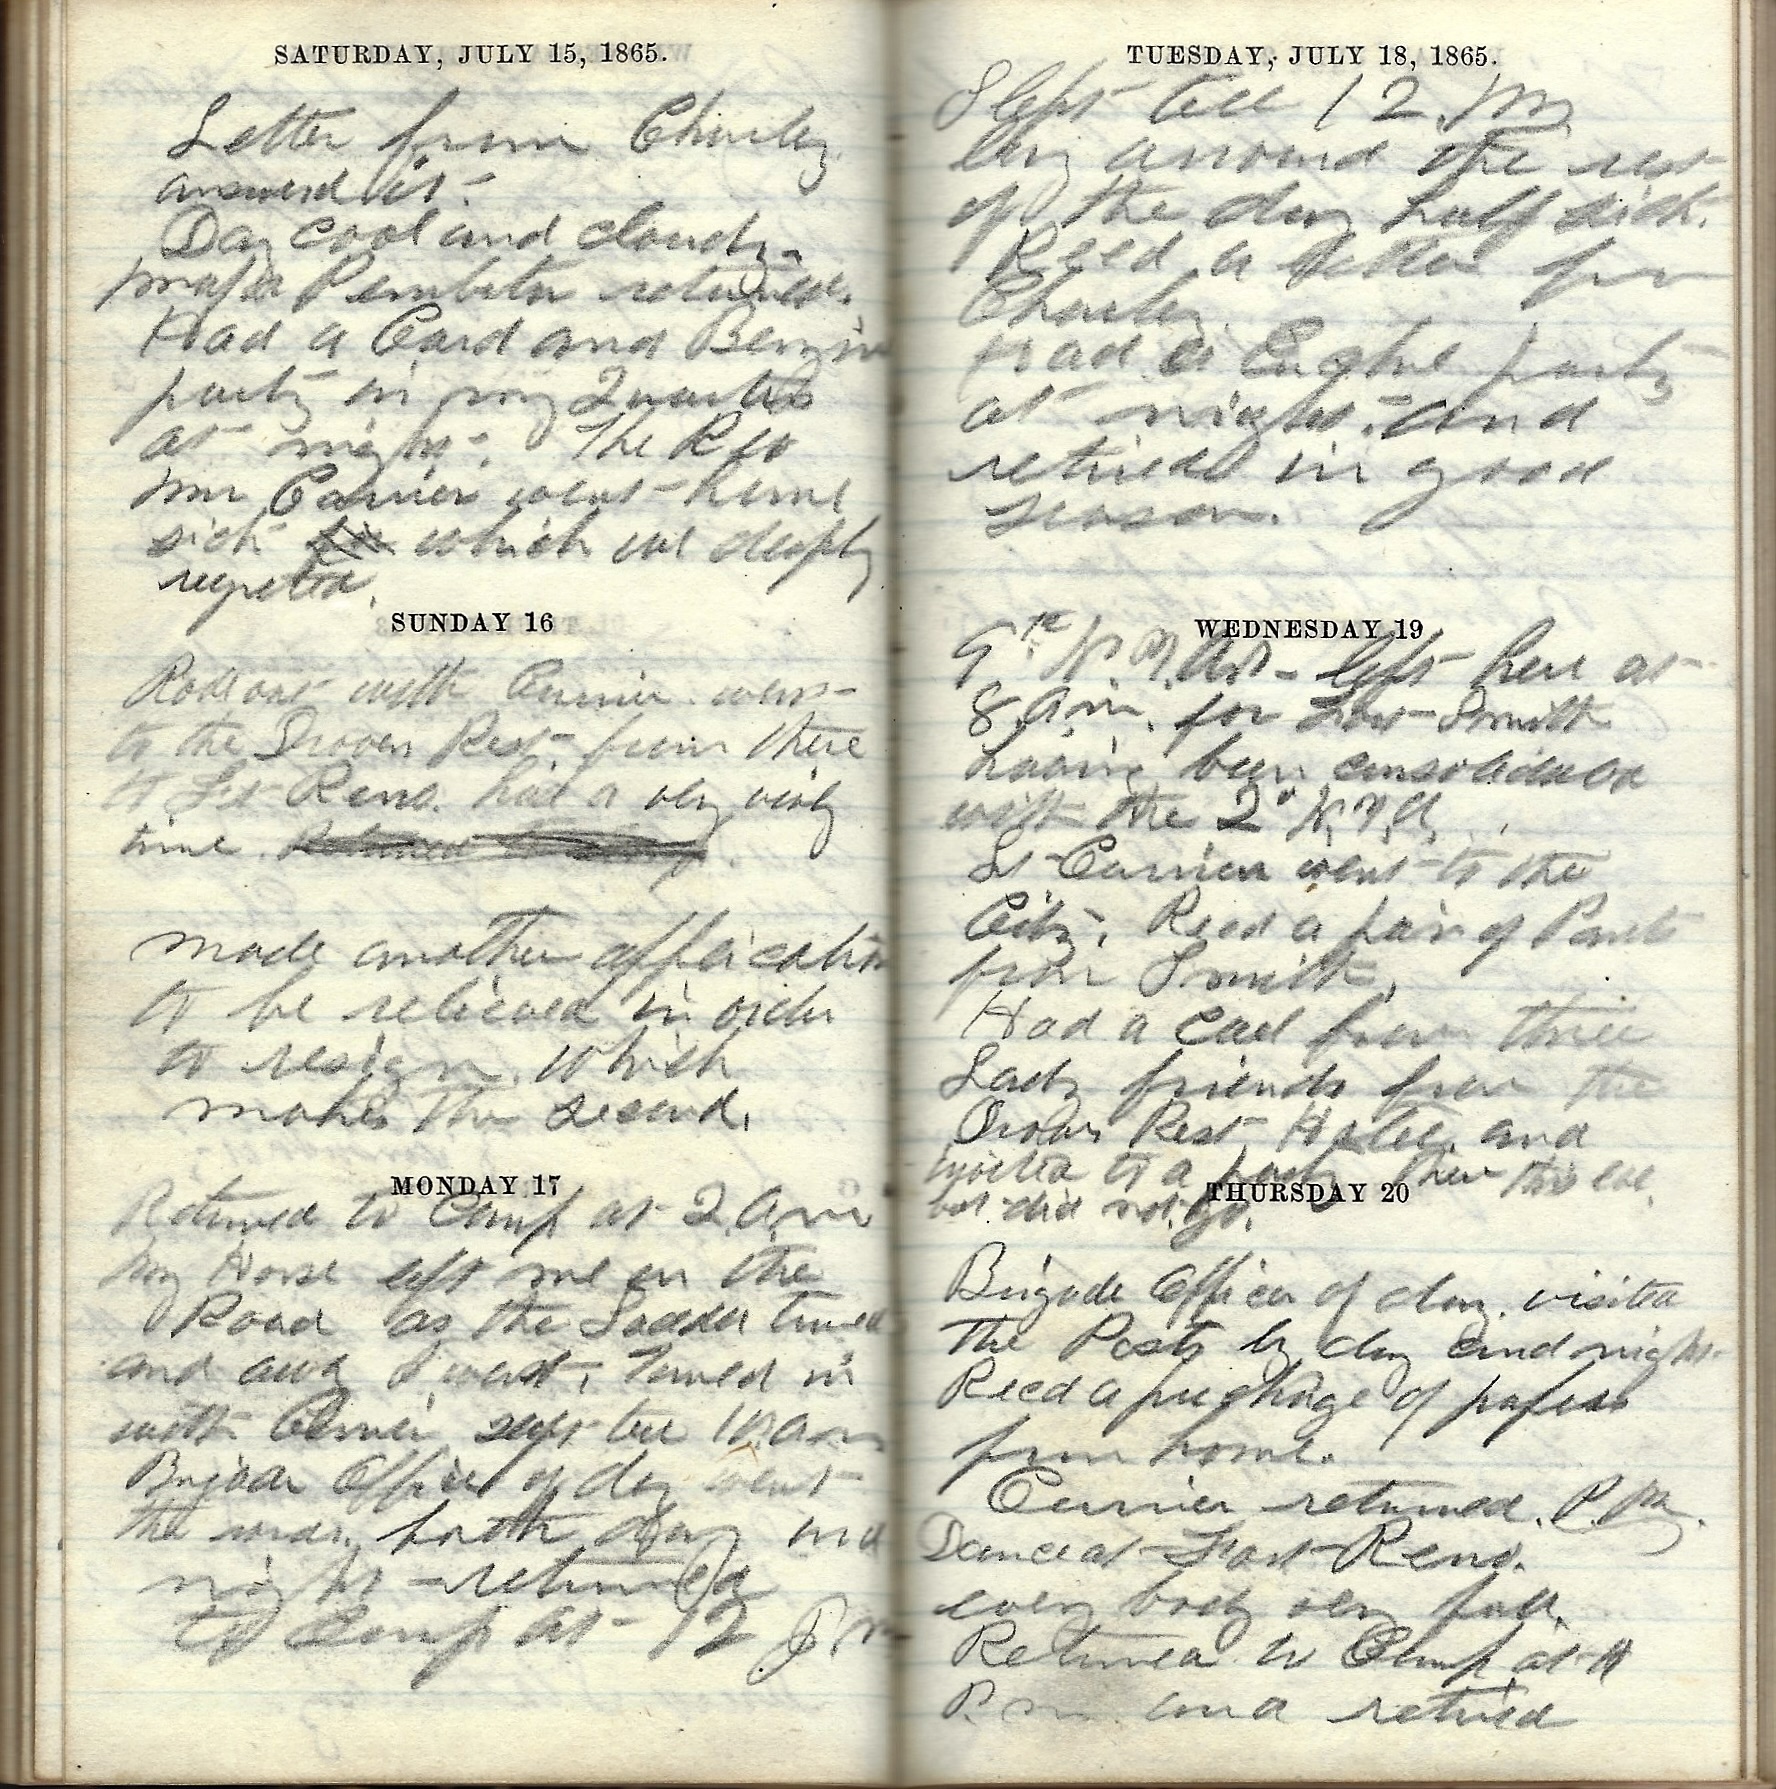 SATURDAY, JULY 15, 1865.
Letter from Charley.
answerd it.
Day cool and cloudy.
Major Pemberton returned.
Had a Card and
party in my Quarters
at night. The
Mr Currier went home
sick which we deeply
regreted.
SUNDAY 16
Rode out with Currier. went
to the Drovers Rest from there
to Ft Reno. had a very
time.
made another application
to be relieved in order
to resign. Which
makes the second.
MONDAY 17
Returned to Camp at 2 a.m
My Horse left me on the
Road as the Saddle turned
and away I went. Turned in
with Currier slept till 10 a m
Brigade Officer of day went
the both day and
night returned
to Camp at 12 P m
TUESDAY, JULY 18, 1865.
Slept till 12 M
lay arround the rest
of the day half sick.
Recd a letter from
Charley.
Had a Euchre party
at night. and
retired in good
season.
WEDNESDAY 19
9th N.Y. Art left here at
8 a.m. for Fort Smith
having been consolidated
with the 2d N.Y.A.
Lt Currier went to the
City. Recd a pair of Pants
from Smith.
Had a call from three
Lady friends from the
Drovers Rest Hotel and
invited to a party there this eve.
but did not go.
THURSDAY 20
Brigade Officer of day. visited
the Posts by day and night
Recd a package of papers
from home.
Currier returned. P.M.
Dance at Fort Reno.
every body very full.
Returned to Camp at 11
P.m. and retired